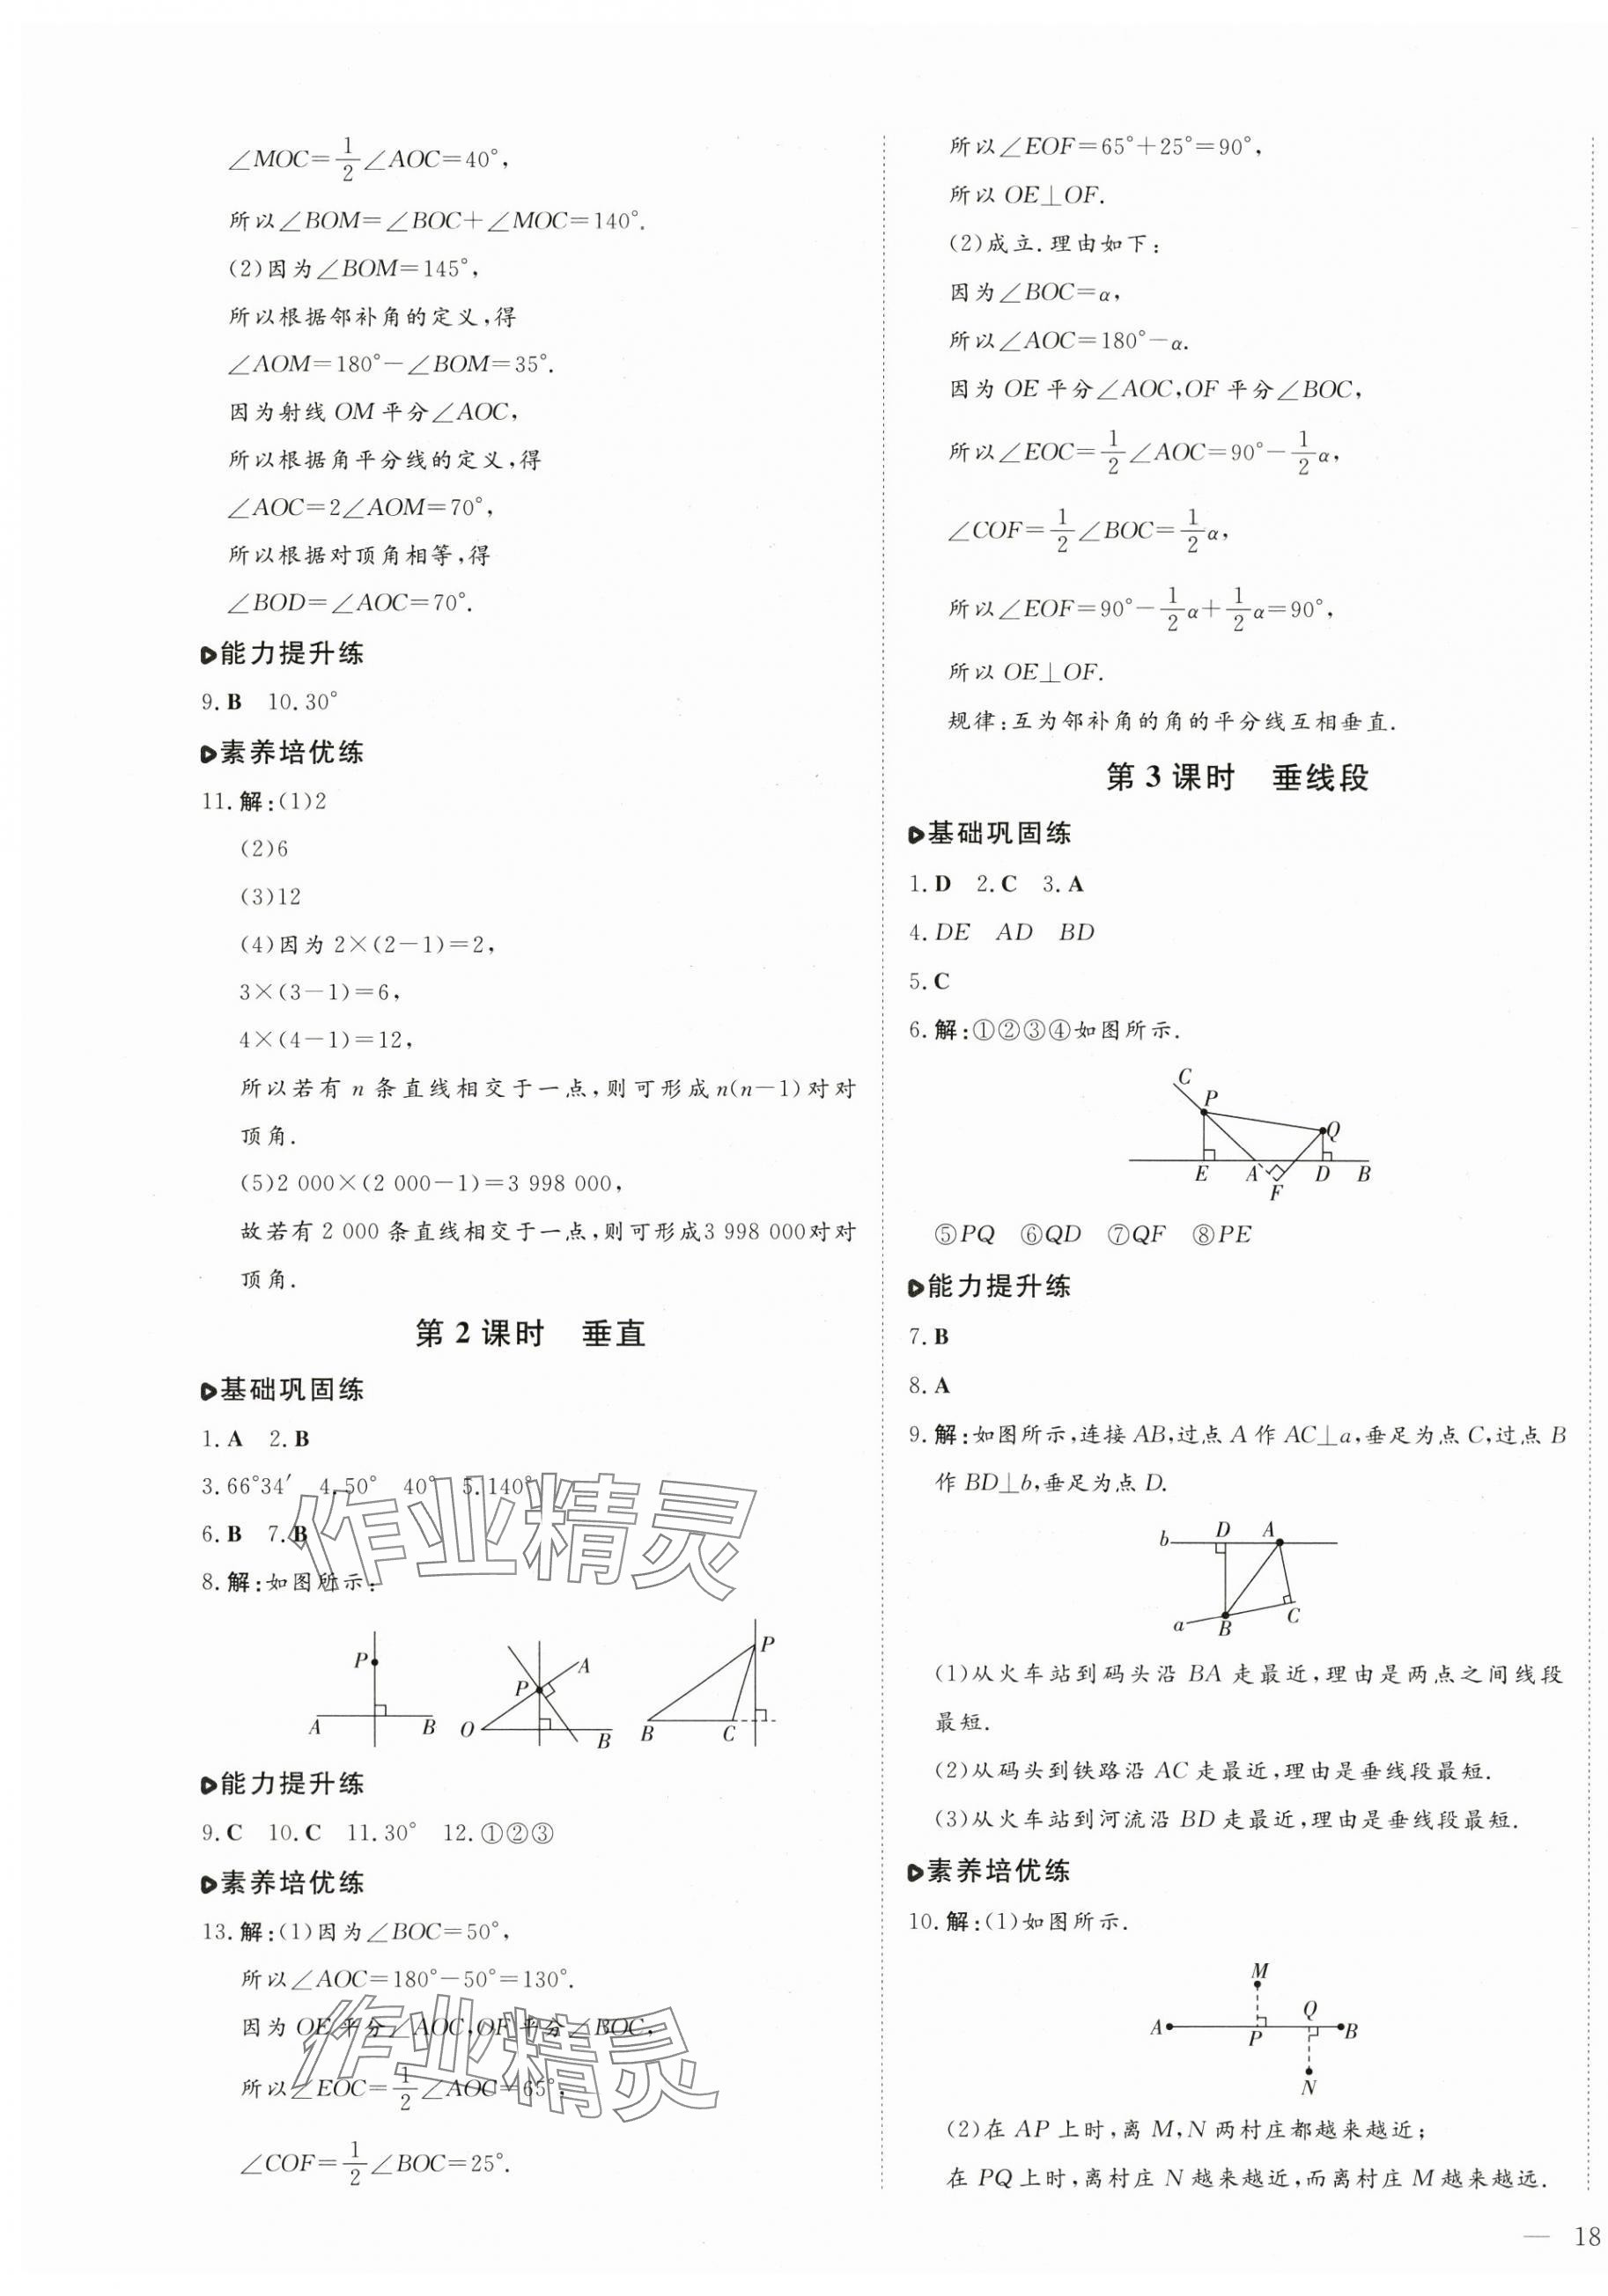 ∠MOC=1/2∠AOC=40°,
所以∠BOM=∠BOC+∠MOC=140°.
(2)因为∠BOM=145°,
所以根据邻补角的定义,得
∠AOM=180°-∠BOM=35°.
因为射线 OM 平分∠AOC,
所以根据角平分线的定义,得
∠AOC=2∠AOM=70°,
所以根据对顶角相等,得
∠BOD=∠AOC=70°.
能力提升练
9.B 10.30°
素养培优练
11.解:(1)2
(2)6
(3)12
(4)因为 2×(2-1)=2,
3×(3-1)=6,
4×(4-1)=12,
所以若有 n 条直线相交于一点,则可形成n(n-1)对对
顶角.
(5)2 000×(2 000-1)=3 998 000,
故若有 2 000 条直线相交于一点,则可形成3 998 000对对
顶角.
第 2 课时 垂直
基础巩固练
1.A 2.B
3.66°34′ 4.50° 40° 5.140°
6.B 7.B
8.解:如图所示:
P A B
A P O B
P B C
能力提升练
9.C 10.C 11.30° 12.①②③
素养培优练
13.解:(1)因为∠BOC=50°,
所以∠AOC=180°-50°=130°.
因为 OE 平分∠AOC,OF 平分∠BOC,
所以∠EOC=1/2∠AOC=65°,
∠COF=1/2∠BOC=25°.
作业精灵
作业精灵
所以∠EOF=65°+25°=90°,
所以 OE⊥OF.
(2)成立.理由如下:
因为∠BOC=α,
所以∠AOC=180°-α.
因为 OE 平分∠AOC,OF 平分∠BOC,
所以∠EOC=1/2∠AOC=90°-1/2α,
∠COF=1/2∠BOC=1/2α,
所以∠EOF=90°-1/2α+1/2α=90°,
所以 OE⊥OF.
规律:互为邻补角的角的平分线互相垂直.
第 3 课时 垂线段
基础巩固练
1.D 2.C 3.A
4.DE AD BD
5.C
6.解:①②③④如图所示.
C
P
Q
E A D B
F
⑤PQ ⑥QD ⑦QF ⑧PE
能力提升练
7.B
8.A
9.解:如图所示,连接 AB,过点 A 作 AC⊥a,垂足为点 C,过点 B
作 BD⊥b,垂足为点 D.
b D A
a B C
(1)从火车站到码头沿 BA 走最近,理由是两点之间线段
最短.
(2)从码头到铁路沿 AC 走最近,理由是垂线段最短.
(3)从火车站到河流沿 BD 走最近,理由是垂线段最短.
素养培优练
10.解:(1)如图所示.
M
Q
A P B
N
(2)在 AP 上时,离 M,N 两村庄都越来越近;
在 PQ 上时,离村庄 N 越来越近,而离村庄 M 越来越远.
— 18